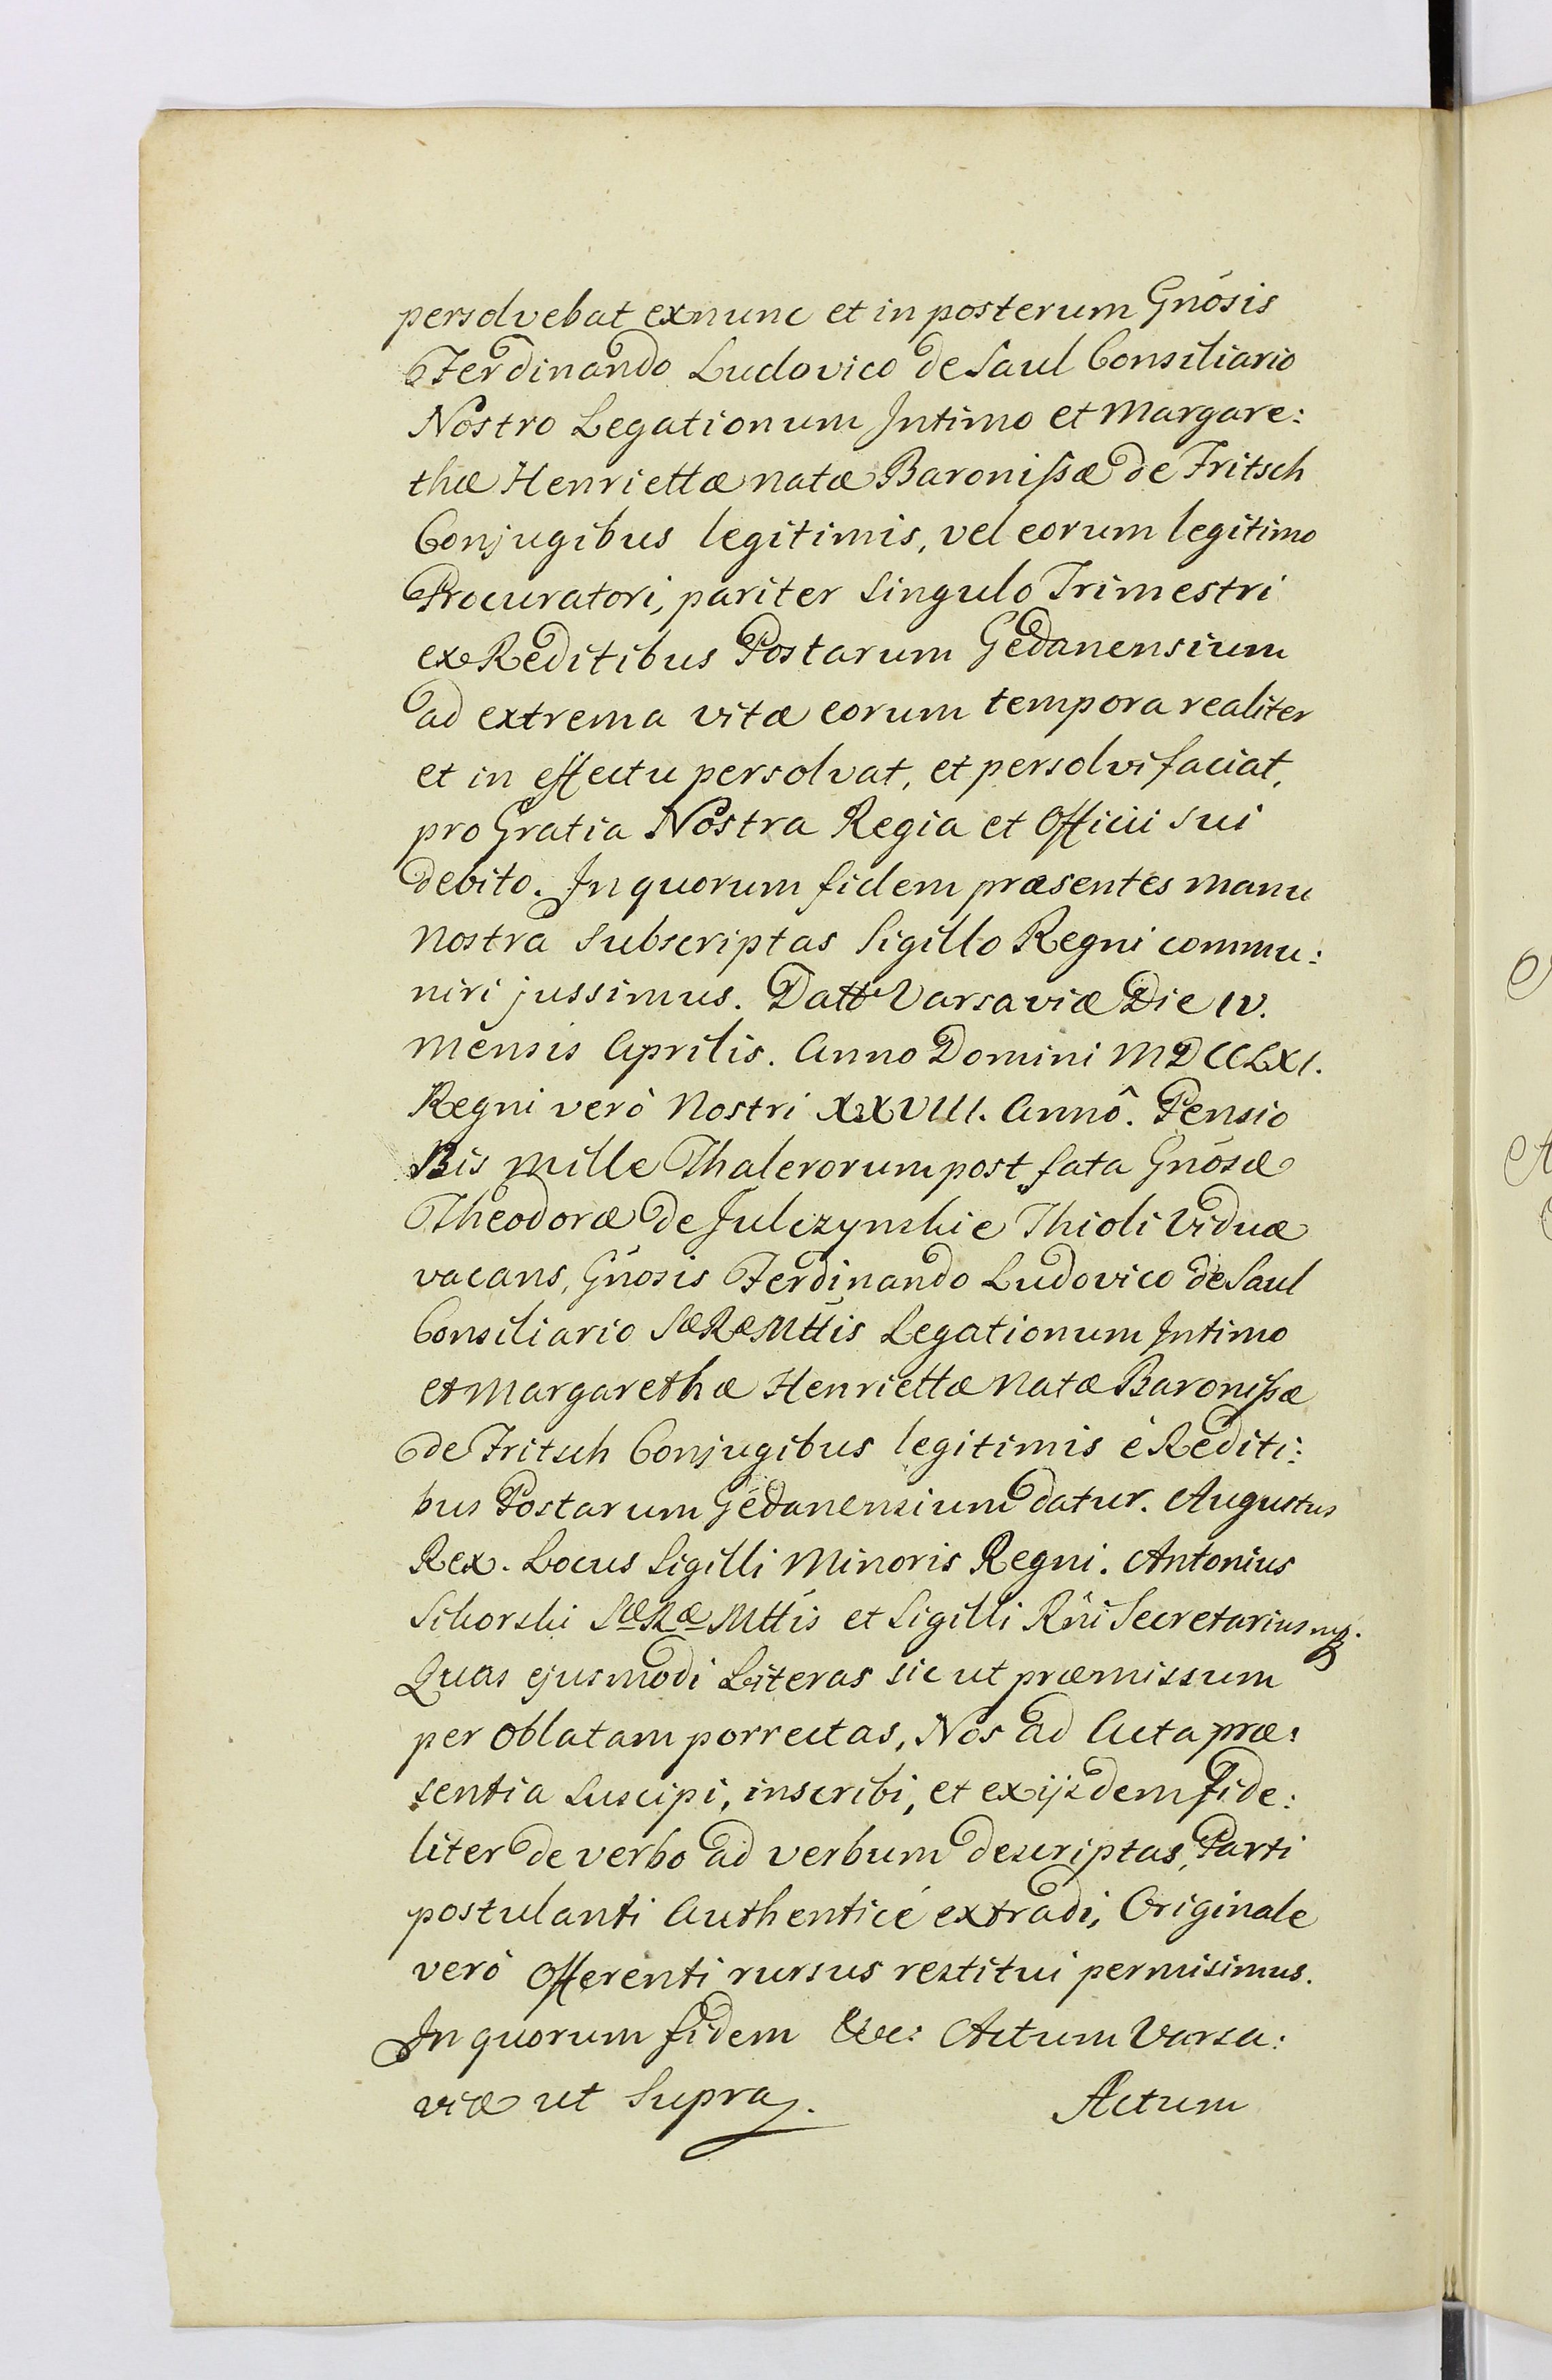 persolvebat exnunc et in posterum Gnosis
Ferdinando Ludovico de Saul Consiliario
Nostro Legationum Intimo et Margare:
thæ Henriettæ natæ Baronissæ de Fritsch
Conjugibus legitimis, vel eorum legitimo
Procuratori, pariter singulo Trimestri
ex Reditibus Postarum Gedanensium
ad extrema vitæ eorum tempora realiter
et in effectu persolvat, et persolvi faciat,
pro Gratia Nostra Regia et Officii sui
debito. In quorum fidem præsentes manu
nostra subscriptas Sigillo Regni commu:
niri jussimus. Datt Varsaviæ Die IV.
mensis Aprilis. Anno Domini MDCCLXI.
Regni verò Nostri XXVIII. Annô. Pensio
Bis mille Thalerorum post fata Gnosæ
Theodoræ de Julczynskie Thioli Viduæ
vacans, Gnosis Ferdinando Ludovico de Saul
Consiliario SæRæMttis Legationum Intimo
et Margarethæ Henriettæ Natæ Baronissæ
de Fritsch Conjugibus legitimis è Rediti:
bus Postarum Gedanensium datur. Augustus
Rex. Locus Sigilli Minoris Regni. Antonius
Sikorski SæRæ Mttis et Sigilli Rni Secretarius mp.
Quas ejusmodi Literas sic ut præmissum
per Oblatam porrectas, Nos ad Acta præ:
sentia suscipi, inscribi, et ex ijsdem fide:
liter de verbo ad verbum descriptas, Parti
postulanti Authenticè extradi, Originale
verò Offerenti rursus restitui permisimus.
In quorum fidem &c: Actum Varsa:
viæ ut supra.
Actum